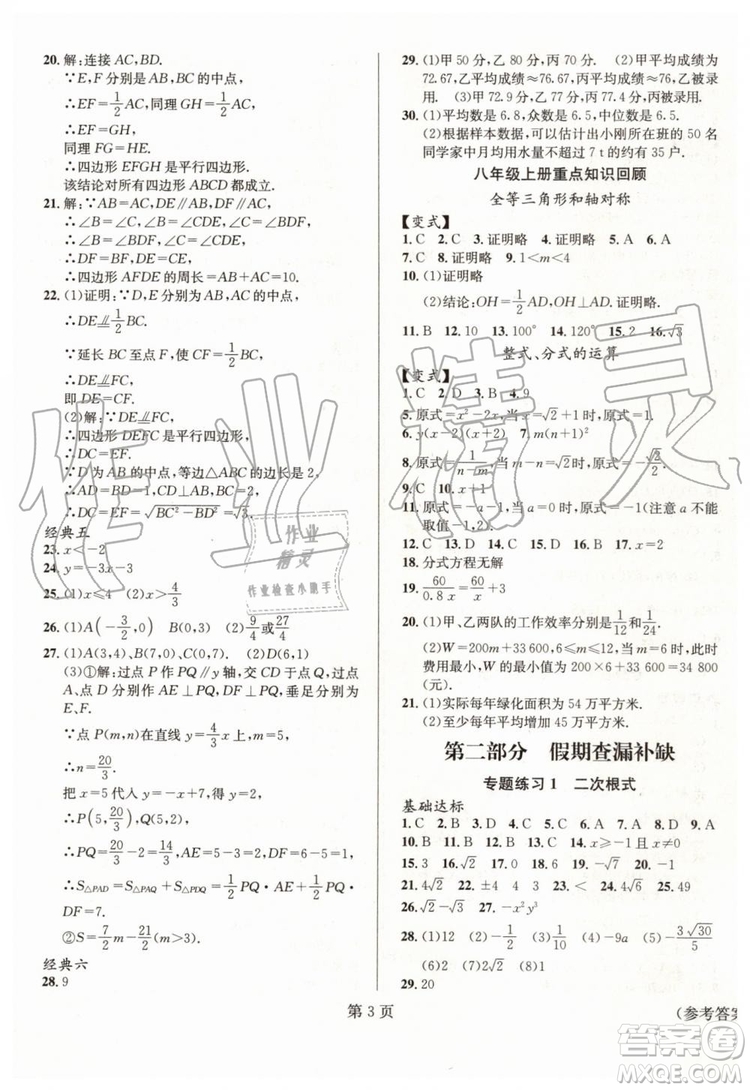 20. 解:连接 AC,BD.
∵E,F 分别是 AB,BC 的中点,
∴EF=1/2AC,同理 GH=1/2AC,
∴EF=GH,
同理 FG=HE.
∴四边形 EFGH 是平行四边形.
该结论对所有四边形 ABCD 都成立.
21. 解:∵AB=AC,DE∥AC,DF∥AB,
∴∠B=∠C,∠B=∠EDC,∠C=∠BDF,
∴∠B=∠BDF,∠C=∠EDC,
∴DF=BF,DE=EC.
∴四边形 AFDE 的周长=AB+AC=10.
22. (1)证明:∵D,E 分别为 AB,AC 的中点,
∴DE∥=1/2BC.
∵延长 BC 至点 F,使 CF=1/2BC,
∴DE∥=FC,
即 DE=CF.
(2)解:∵DE∥=FC,
∴四边形 DEFC 是平行四边形,
∴DC=EF.
∵D 为 AB 的中点,等边△ABC 的边长是 2,
∴AD=BD=1,CD⊥AB,BC=2,
∴DC=EF=√(BC²-BD²)=√3.
经典五
23. x<-2
24. y=-3x-3
25. (1)x≤4 (2)x>5
26. (1)A(-3/2,0) B(0,3) (2)9/4或27/4
27. (1)A(3,4),B(7,0) (2)D(6,1)
(3)①解:过点 P 作 PQ∥y 轴,交 CD 于点 Q,过点 A、点 D 分别作 AE⊥PQ,DF⊥PQ,垂足分别为
E、F.
∵点 P(m,n)在直线 y=4/3x 上,且 m=5,
∴n=20/3.
把 x=5 代入 y=x-3,得 y=2,
∴P(5,20/3),Q(5,2),
∴PQ=20/3-2=14/3,AE=5-3=2,DF=6-5=1,
∴S△PAD=S△PAQ+S△PDQ=1/2PQ·AE+1/2PQ·DF=7.
②S=7/2m-21/2(m>3).
经典六
28. 9
29. (1)甲 50 分,乙 80 分,丙 70 分. (2)甲平均成绩≈
72.67,乙平均成绩≈76.67,丙平均成绩≈76,乙被录
用. (3)甲72.9分,乙77分,丙77.4分,丙被录用.
30. (1)平均数是 6.8,众数是 6.5,中位数是 6.5.
(2)根据样本数据,可以估计出小刚所在班的 50 名
同学家中月均用水量不超过 7 t 的约有 35 户.
八年级上册重点知识回顾
全等三角形和轴对称
【变式】
1. C 2. D 3. C 4. 证明略 5. A 6. A
7. C 8. 证明略 9. 1<m<4
10. (1)证明略
(2)结论:OH=1/2AD,OH⊥AD.
11. B 12. 10 13. 100° 14. 120° 15. 2 16. √3
整式、分式的运算
【变式】
1. C 2. D 3. B 4. 9
5. 原式=x²-2x,当 x=√2+1时,原式=1.
6. y(x+2)(x-2) 7. m(n+1)²
8. 原式=1/(n-m),原式=1/5.
9. C 10. A
11. 原式=-a-1,当 a=0 时,原式=-1(注意 a 不能
取值-1,2).
12. C 13. D 14. D 15. B 16. C 17. 3
18. 分式方程无解
19. 60/0.8x=60/x+3
20. (1)甲、乙两队的工作效率分别是1/12和1/24.
(2)W=200m+33 600,6≤m≤12,所以此时
费用最小,W最小值为 200×6+33 600=34 800
(元).
21. (1)实际每年绿化面积为 54 万平方米.
(2)至少每年平均增加 45 万平方米.
第二部分 假期查漏补缺
专题练习 1 二次根式
基础达标
1. C 2. D 3. D 4. B 5. D 6. A 7. D 8. A 9. A
10. B 11. B 12. B 13. C 14. 4
15. 3 16. < 17. √5 18. 2√3 19. √3 20. -1
21. 49 22. √2 23. ±4 24. 3 25. 4
26. √2-√6 27. -x²y³
28. (1)12 (2)-1/2 (3)-1/2 (4)-9a (5)-3√30/5
(6)2 (7)2
29. 20
第 3 页
(参考答案
作业精灵
作业
精灵
作业检查小助手
答案圈
MXQE.COM